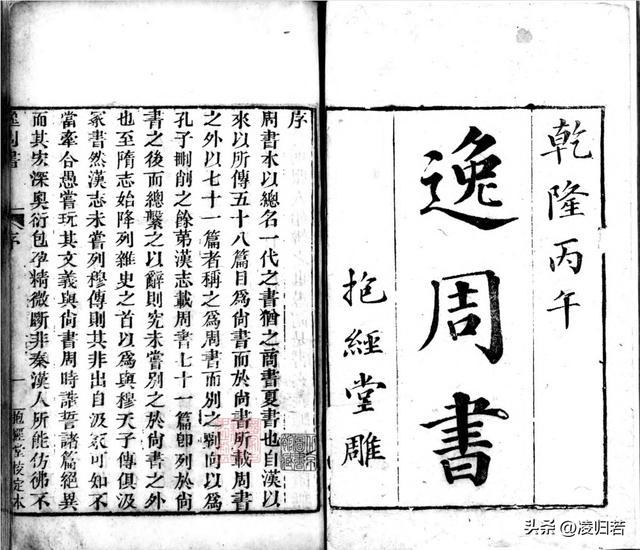 乾隆丙午
逸周書
抱經堂雕
序
周書本以總名一代之書猶之商書夏書也自漢以
來以所傳五十八篇目為尚書而於尚書所載周書
之外以七十一篇者稱之為周書而別之劉向以為
孔子刪削之餘第漢志載周書七十一篇卽列於尚
書之後而總繫之以辭則究未嘗別之於尚書之外
也至隋志始降列雜史之首以為與穆天子傳俱汲
冢書然漢志未嘗列穆傳則其非出自汲冢可知不
當牽合愚嘗玩其文義與尚書周時誥誓諸篇絕異
而其宏深奧衍包孕精微斷非秦漢人所能仿彿不
逸周書 序 一 抱經堂校定本
头条 @凌归若